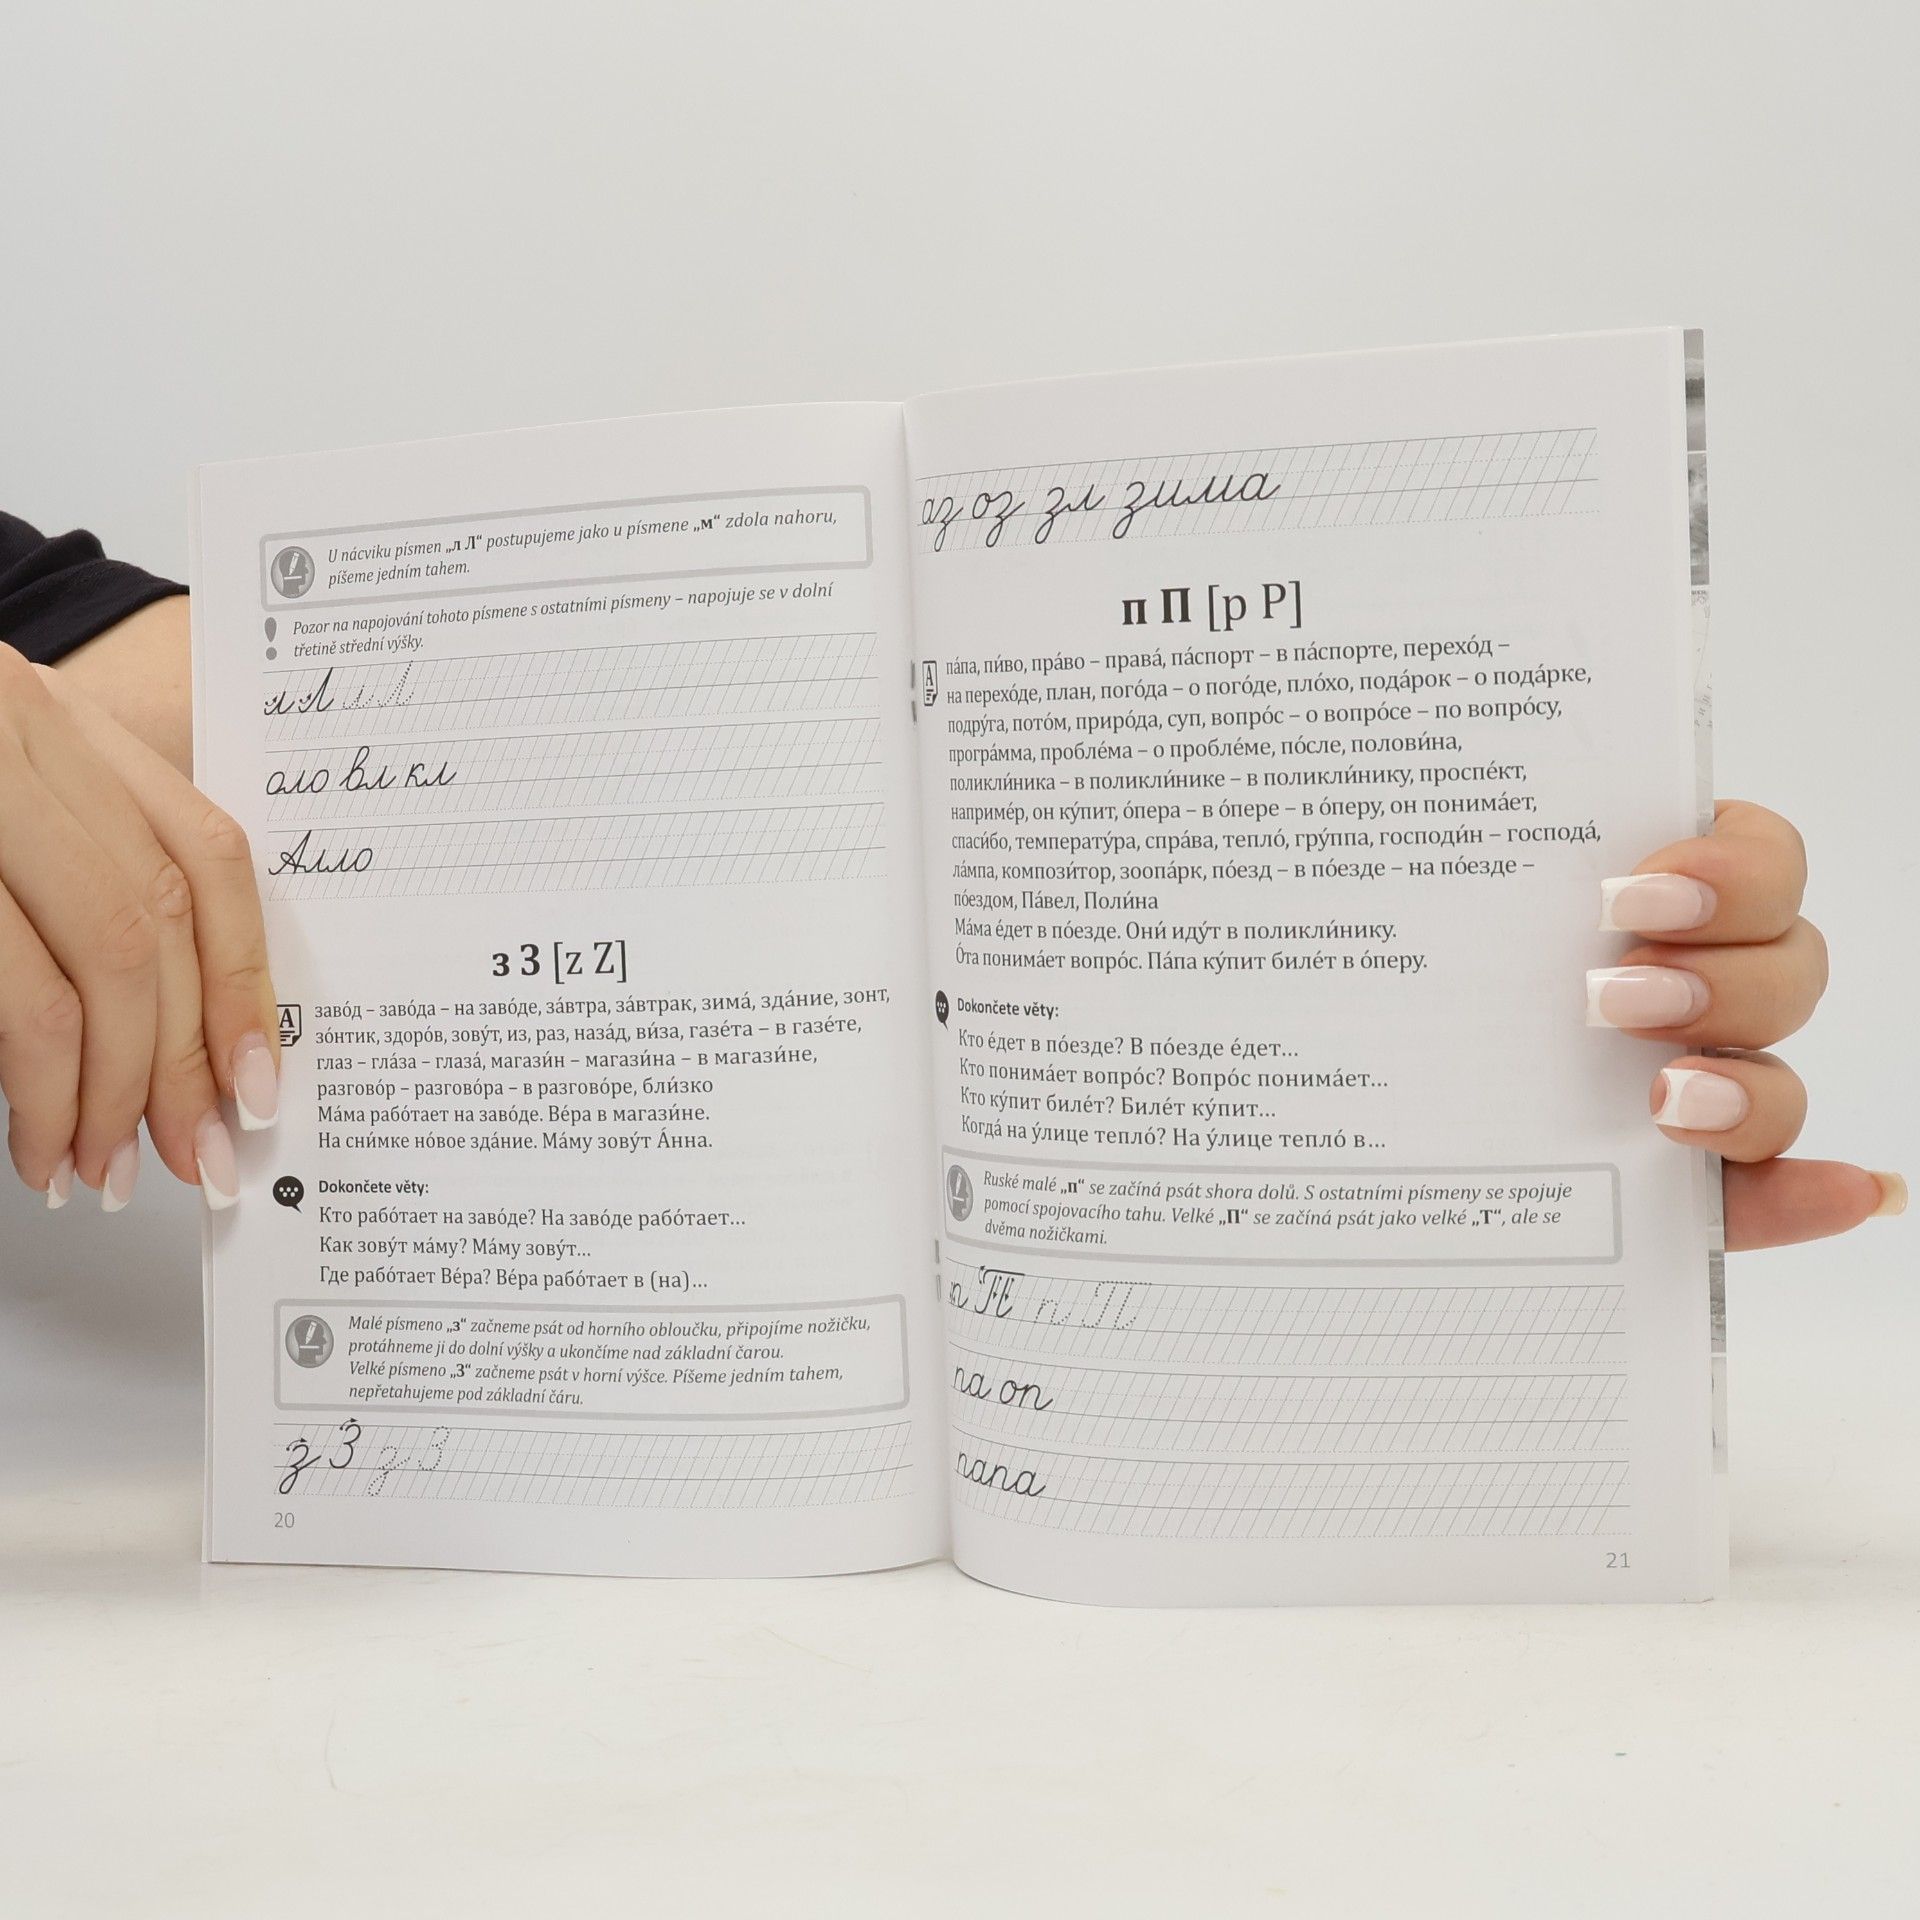 U nácviku písmen „л Л“ postupujeme jako u písmene „м“ zdola nahoru,
píšeme jedním tahem.
Pozor na napojování tohoto písmene s ostatními písmeny – napojuje se v dolní
třetině střední výšky.
л Л л Л
оло вл кл
Алло
з З [z Z]
заво́д – заво́да – на заво́де, за́втра, за́втрак, зима́, зда́ние, зонт,
зо́нтик, здоро́в, зову́т, из, раз, наза́д, ви́за, газе́та – в газе́те,
глаз – гла́за – глаза́, магази́н – магази́на – в магази́не,
разгово́р – разгово́ра – в разгово́ре, бли́зко
Ма́ма рабо́тает на заво́де. Ве́ра в магази́не.
На сни́мке но́вое зда́ние. Ма́му зову́т А́нна.
Dokončete věty:
Кто рабо́тает на заво́де? На заво́де рабо́тает…
Как зову́т ма́му? Ма́му зову́т…
Где рабо́тает Ве́ра? Ве́ра рабо́тает в (на)…
Malé písmeno „з“ začneme psát od horního obloučku, připojíme nožičku,
protáhneme ji do dolní výšky a ukončíme nad základní čarou.
Velké písmeno „З“ začneme psát v horní výšce. Píšeme jedním tahem,
nepřetahujeme pod základní čáru.
з З з З
20
аз оз зл зима
п П [p P]
па́па, пи́во, пра́во – права́, па́спорт – в па́спорте, перехо́д –
на перехо́де, план, пого́да – о пого́де, пло́хо, пода́рок – о пода́рке,
подру́га, пото́м, приро́да, суп, вопро́с – о вопро́се – по вопро́су,
програ́мма, пробле́ма – о пробле́ме, по́сле, полови́на,
поликли́ника – в поликли́нике – в поликли́нику, проспе́кт,
наприме́р, он ку́пит, о́пера – в о́пере – в о́перу, он понима́ет,
спаси́бо, температу́ра, спра́ва, тепло́, гру́ппа, господи́н – господа́,
ла́мпа, компози́тор, зоопа́рк, по́езд – в по́езде – на по́езде –
по́ездом, Па́вел, Поли́на
Ма́ма е́дет в по́езде. Они́ иду́т в поликли́нику.
О́та понима́ет вопро́с. Па́па ку́пит биле́т в о́перу.
Dokončete věty:
Кто е́дет в по́езде? В по́езде е́дет…
Кто понима́ет вопро́с? Вопро́с понима́ет…
Кто ку́пит биле́т? Биле́т ку́пит…
Когда́ на у́лице тепло́? На у́лице тепло́ в…
Ruské malé „п“ se začíná psát shora dolů. S ostatními písmeny se spojuje
pomocí spojovacího tahu. Velké „П“ se začíná psát jako velké „Т“, ale se
dvěma nožičkami.
п П п П
па оп
папа
21